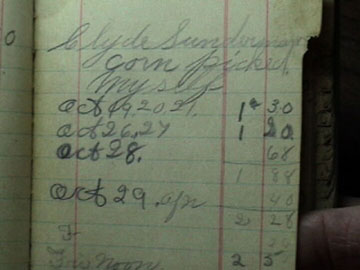 0
Clyde Sunderman
corn picked
myself
Oct 19 20 21. 1 30
Oct 26, 27 1 20
Oct 28. 68
1 88
40
Oct 29.
2 28
noon 2 5